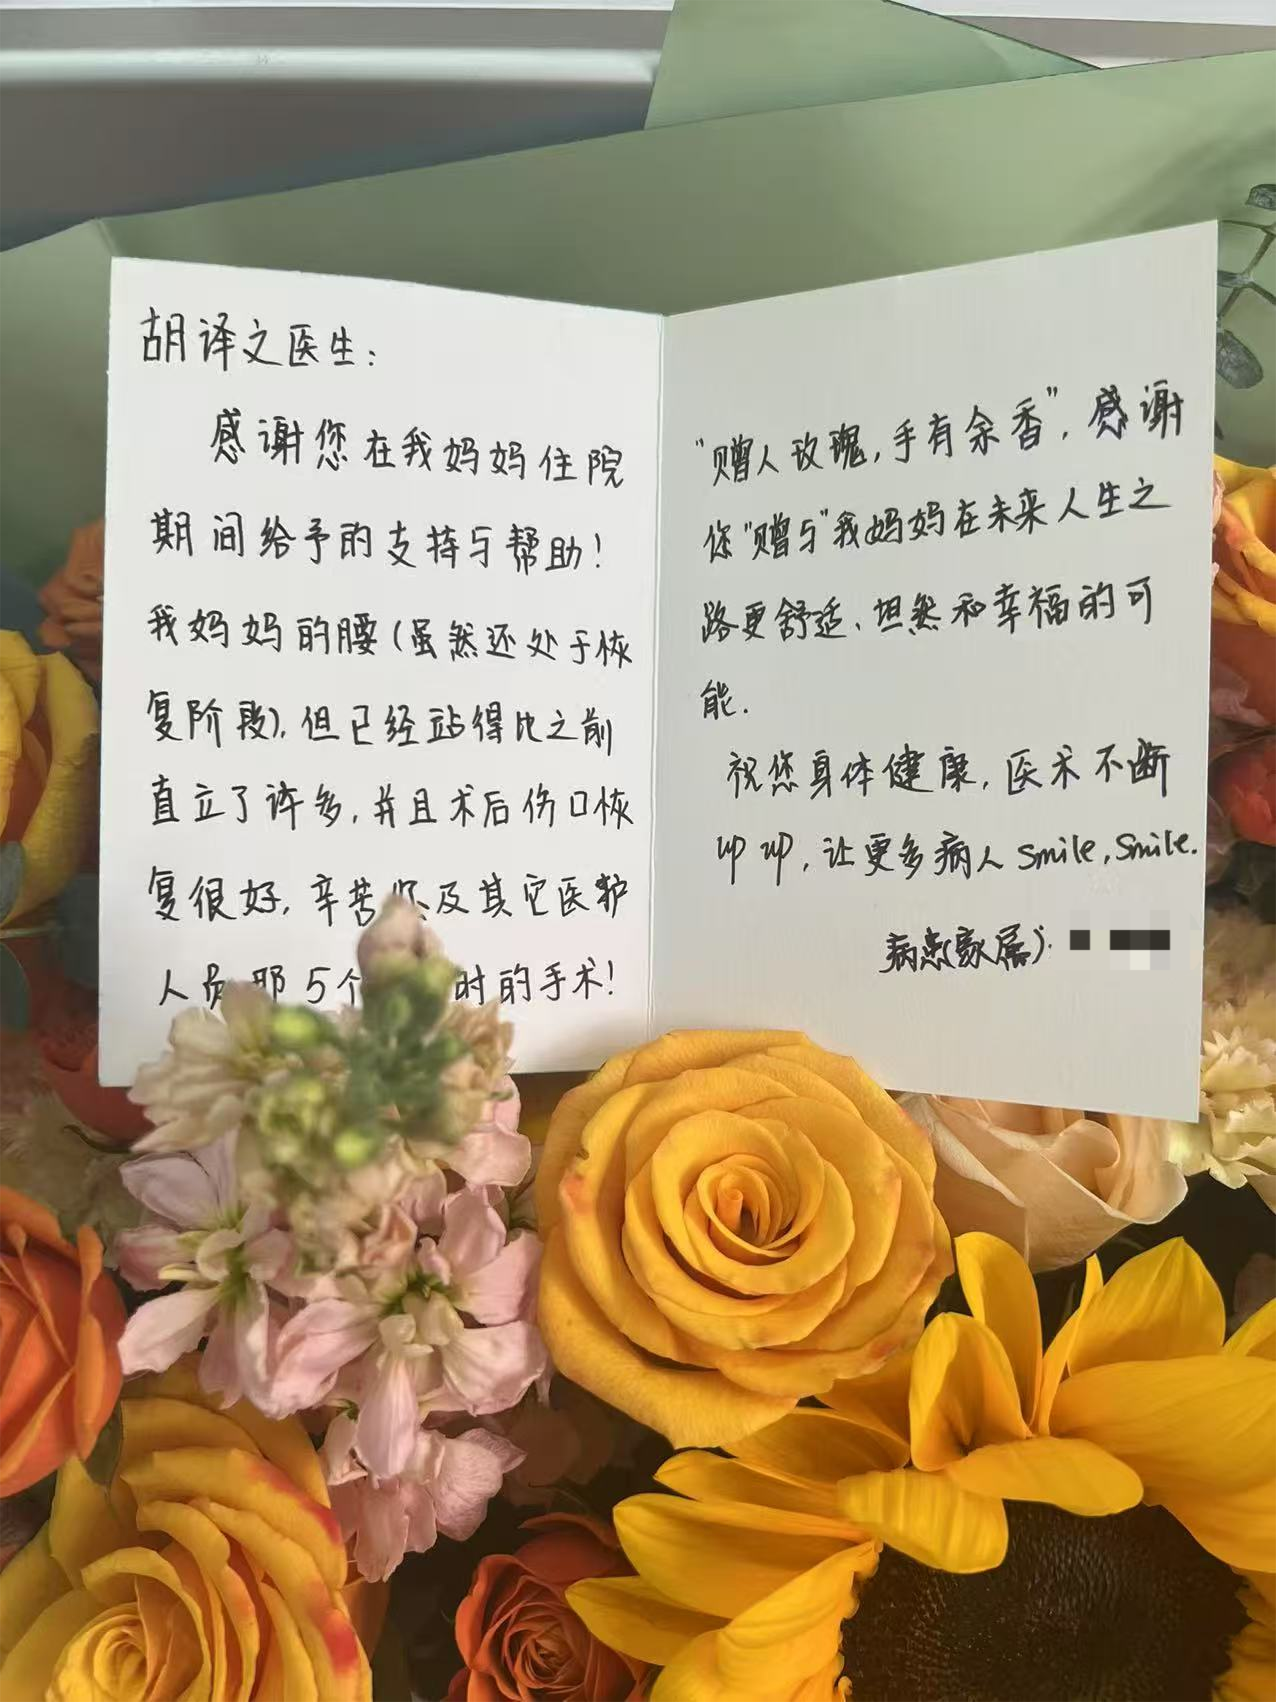 胡译文医生：
感谢您在我妈妈住院
期间给予的支持与帮助！
我妈妈的腰（虽然还处于恢
复阶段），但已经站得比之前
直立了许多，并且术后伤口恢
复很好，辛苦您及其它医护
人员那5个 时的手术！
“赠人玫瑰，手有余香”，感谢
您“赠与”我妈妈在未来人生之
路更舒适、坦然和幸福的可
能.
祝您身体健康，医术不断
up up，让更多病人smile，smile.
病患(家属)：